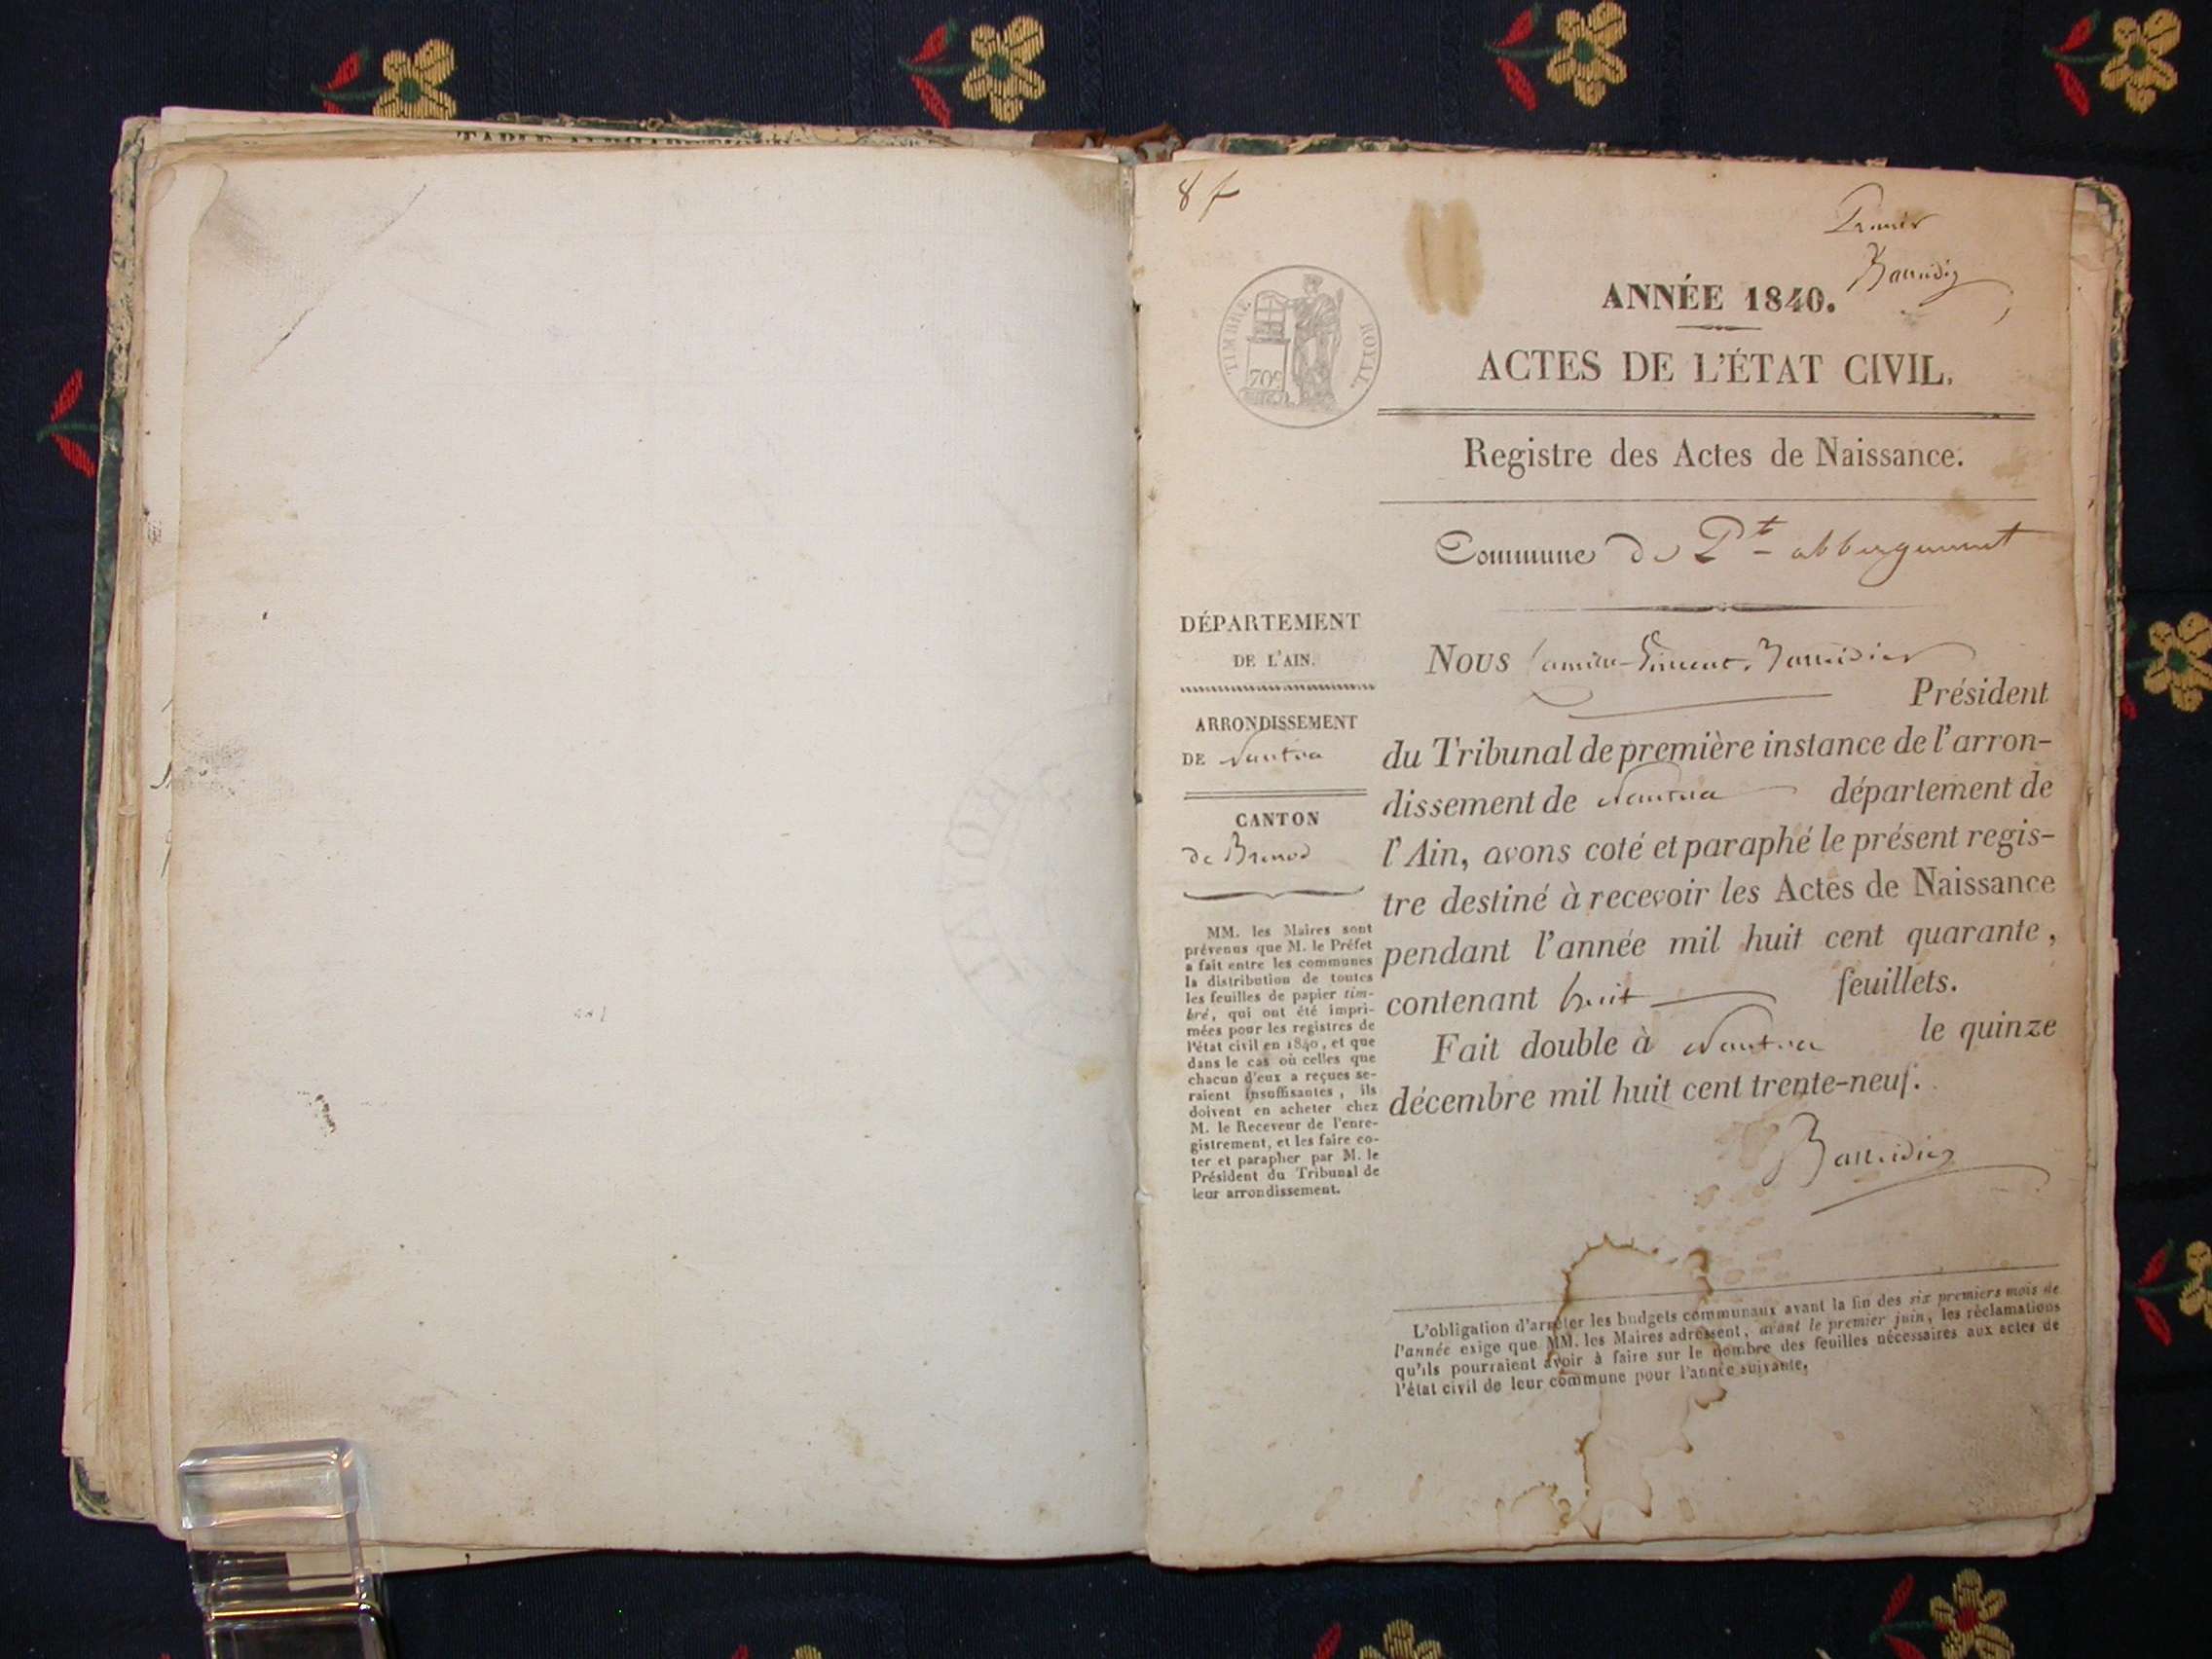 TABLE ALPHABÉTIQUE
8 f
Premier
ANNÉE 1840.
TIMBRE ROYAL.
70c
ACTES DE L'ÉTAT CIVIL.
Registre des Actes de Naissance.
Commune de Pt abbergement
DÉPARTEMENT
DE L'AIN.
ARRONDISSEMENT
DE Nantua
CANTON
de Brenod
MM. les Maires sont
prévenus que M. le Préfet
a fait entre les communes
la distribution de toutes
les feuilles de papier tim-
bré, qui ont été impri-
mées pour les registres de
l'état civil en 1840, et que
dans le cas où celles que
chacun d'eux a reçues se-
raient insuffisantes, ils
doivent en acheter chez
M. le Receveur de l'enre-
gistrement, et les faire co-
ter et parapher par M. le
Président du Tribunal de
leur arrondissement.
Nous
Président
du Tribunal de première instance de l'arron-
dissement de Nantua département de
l'Ain, avons coté et paraphé le présent regis-
tre destiné à recevoir les Actes de Naissance
pendant l'année mil huit cent quarante,
contenant huit feuillets.
Fait double à Nantua le quinze
décembre mil huit cent trente-neuf.
L'obligation d'arrêter les budgets communaux avant la fin des six premiers mois de
l'année exige que MM. les Maires adressent, avant le premier juin, les réclamations
qu'ils pourraient avoir à faire sur le nombre des feuilles nécessaires aux actes de
l'état civil de leur commune pour l'année suivante.